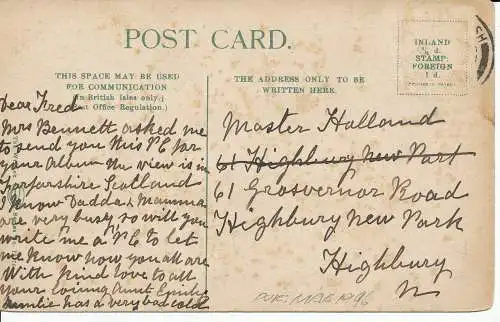 POST CARD.
THIS SPACE MAY BE USED
FOR COMMUNICATION
(In British Isles only.)
Post Office Regulation.)
Dear Fred
Mrs Bennett asked me
to send you this PC for
your Album the view is in
Forfarshire Scotland
I know Dadda & Mamma
are very busy so will you
write me a PC to let
me know how you all are
With kind love to all
Your loving Aunt Emilie
Auntie has a very bad cold
THE ADDRESS ONLY TO BE
WRITTEN HERE.
INLAND
½ d.
STAMP.
FOREIGN
1 d.
SH
Master Holland
61 Highbury New Park
61 Grosvernor Road
Highbury New Park
Highbury
N